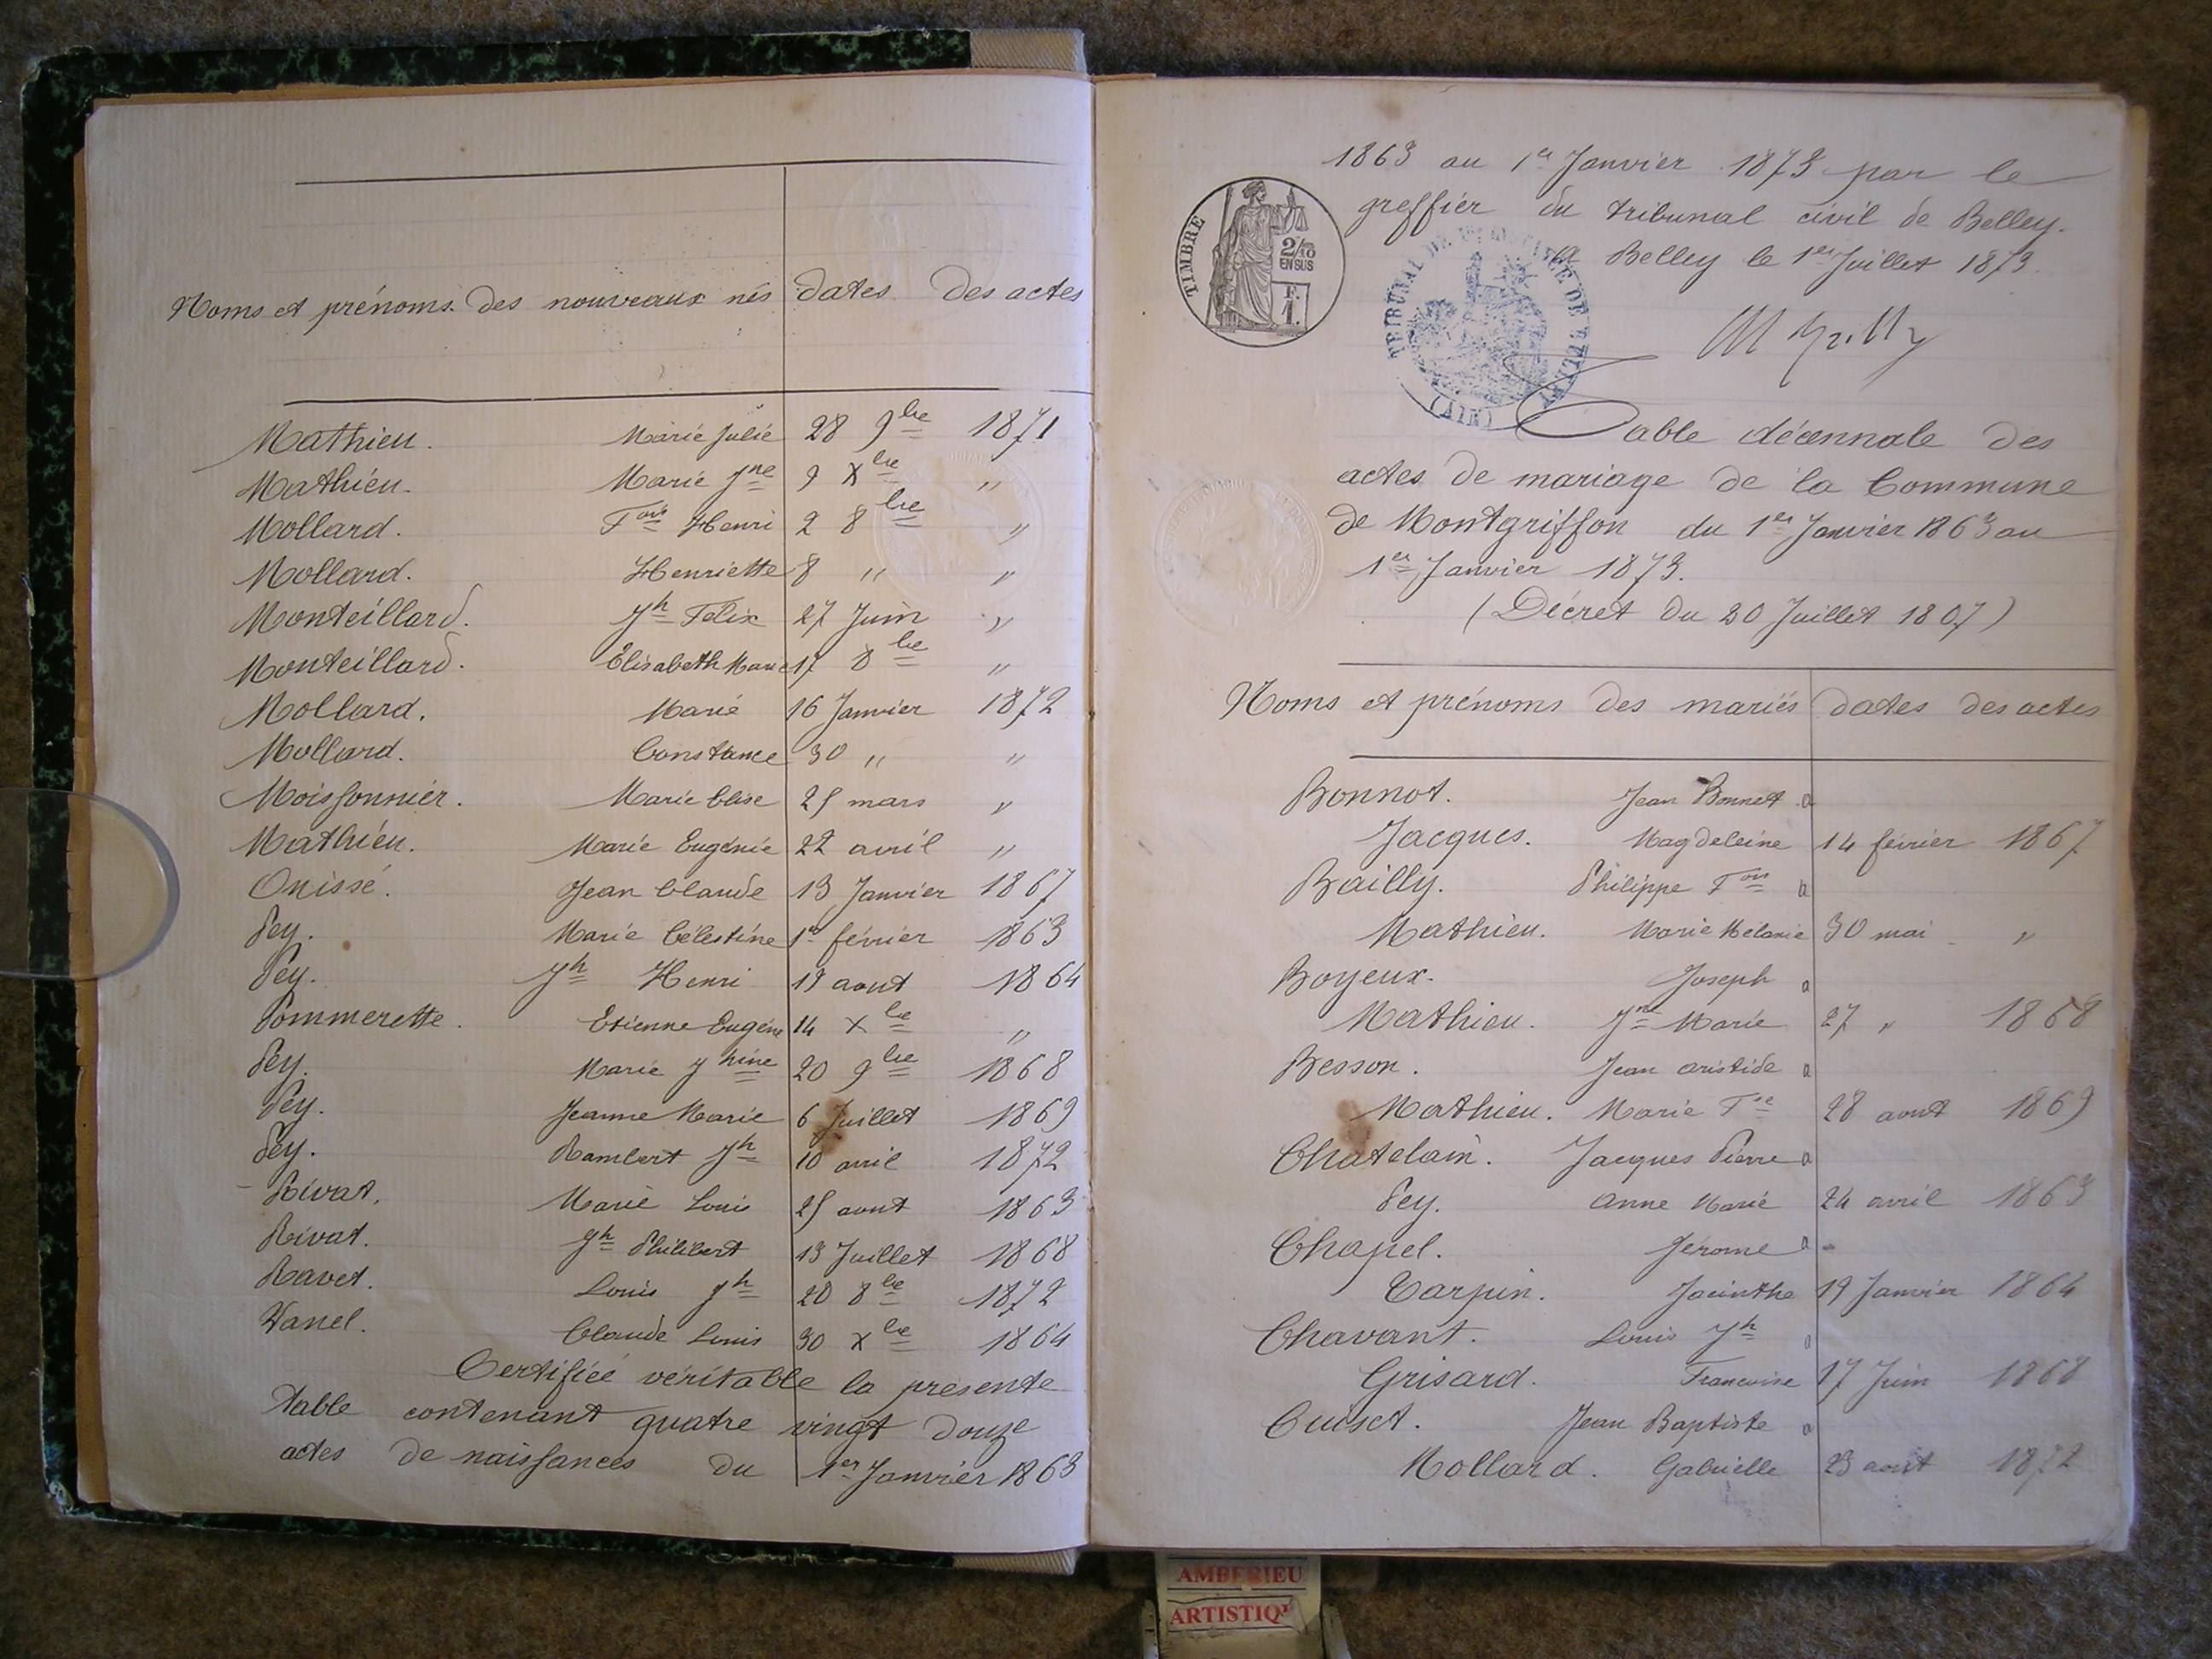 Noms et prénoms des nouveaux nés dates des actes
Mathieu. Marie Julie 28 9bre 1871
Mathieu. Marie Jne 9 Xbre "
Mollard. Fois Henri 2 8bre "
Mollard. Henriette 8 " "
Monteillard. Jh Felix 27 Juin "
Monteillard. Elisabeth Marie 17 8bre "
Mollard. Marie 16 Janvier 1872
Mollard. Constance 30 " "
Moissonnier. Marie Elise 25 mars "
Mathieu. Marie Eugénie 22 avril "
Onissé. Jean Claude 13 Janvier 1867
Pey. Marie Célestine 1er février 1863
Pey. Jh Henri 19 aout 1864
Pommerette. Etienne Eugène 14 Xbre "
Pey. Marie Jhine 20 9bre 1868
Pey. Jeanne Marie 6 Juillet 1869
Pey. Rambert Jh 10 avril 1872
Rivat. Marie Louis 25 aout 1863
Rivat. Jh Philibert 13 Juillet 1868
Ravet. Louis Jh 20 8bre 1872
Vanel. Claude Louis 30 Xbre 1864
Certifiée véritable la présente
table contenant quatre vingt douze
actes de naissances du 1er Janvier 1863
1863 au 1er Janvier 1873 par le
greffier du tribunal civil de Belley.
a Belley le 1er Juillet 1873.
TIMBRE
2/10
EN SUS
F.
1.
TRIBUNAL DE 1re INSTANCE DE BELLEY
(AIN)
Table décennale des
actes de mariage de la Commune
de Montgriffon du 1er Janvier 1863 au
1er Janvier 1873.
(Décret du 20 Juillet 1807)
Noms et prénoms des mariés dates des actes
Bonnot. Jean Bonnet a
Jacques. Magdeleine 14 février 1867
Bailly. Philippe Fois a
Mathieu. Marie Mélanie 30 mai "
Boyeux. Joseph a
Mathieu. Jne Marie 27 " 1868
Besson. Jean aristide a
Mathieu. Marie Fse 28 aout 1869
Chatelain. Jacques Pierre a
Pey. Anne Marie 24 avril 1863
Chapel. Jérome a
Tarpin. Jacinthe 19 Janvier 1864
Chavant. Louis Jh a
Grisard. Francoise 17 Juin 1868
Cuiset. Jean Baptiste a
Mollard. Gabrielle 23 aout 1872
AMBERIEU
ARTISTIQ